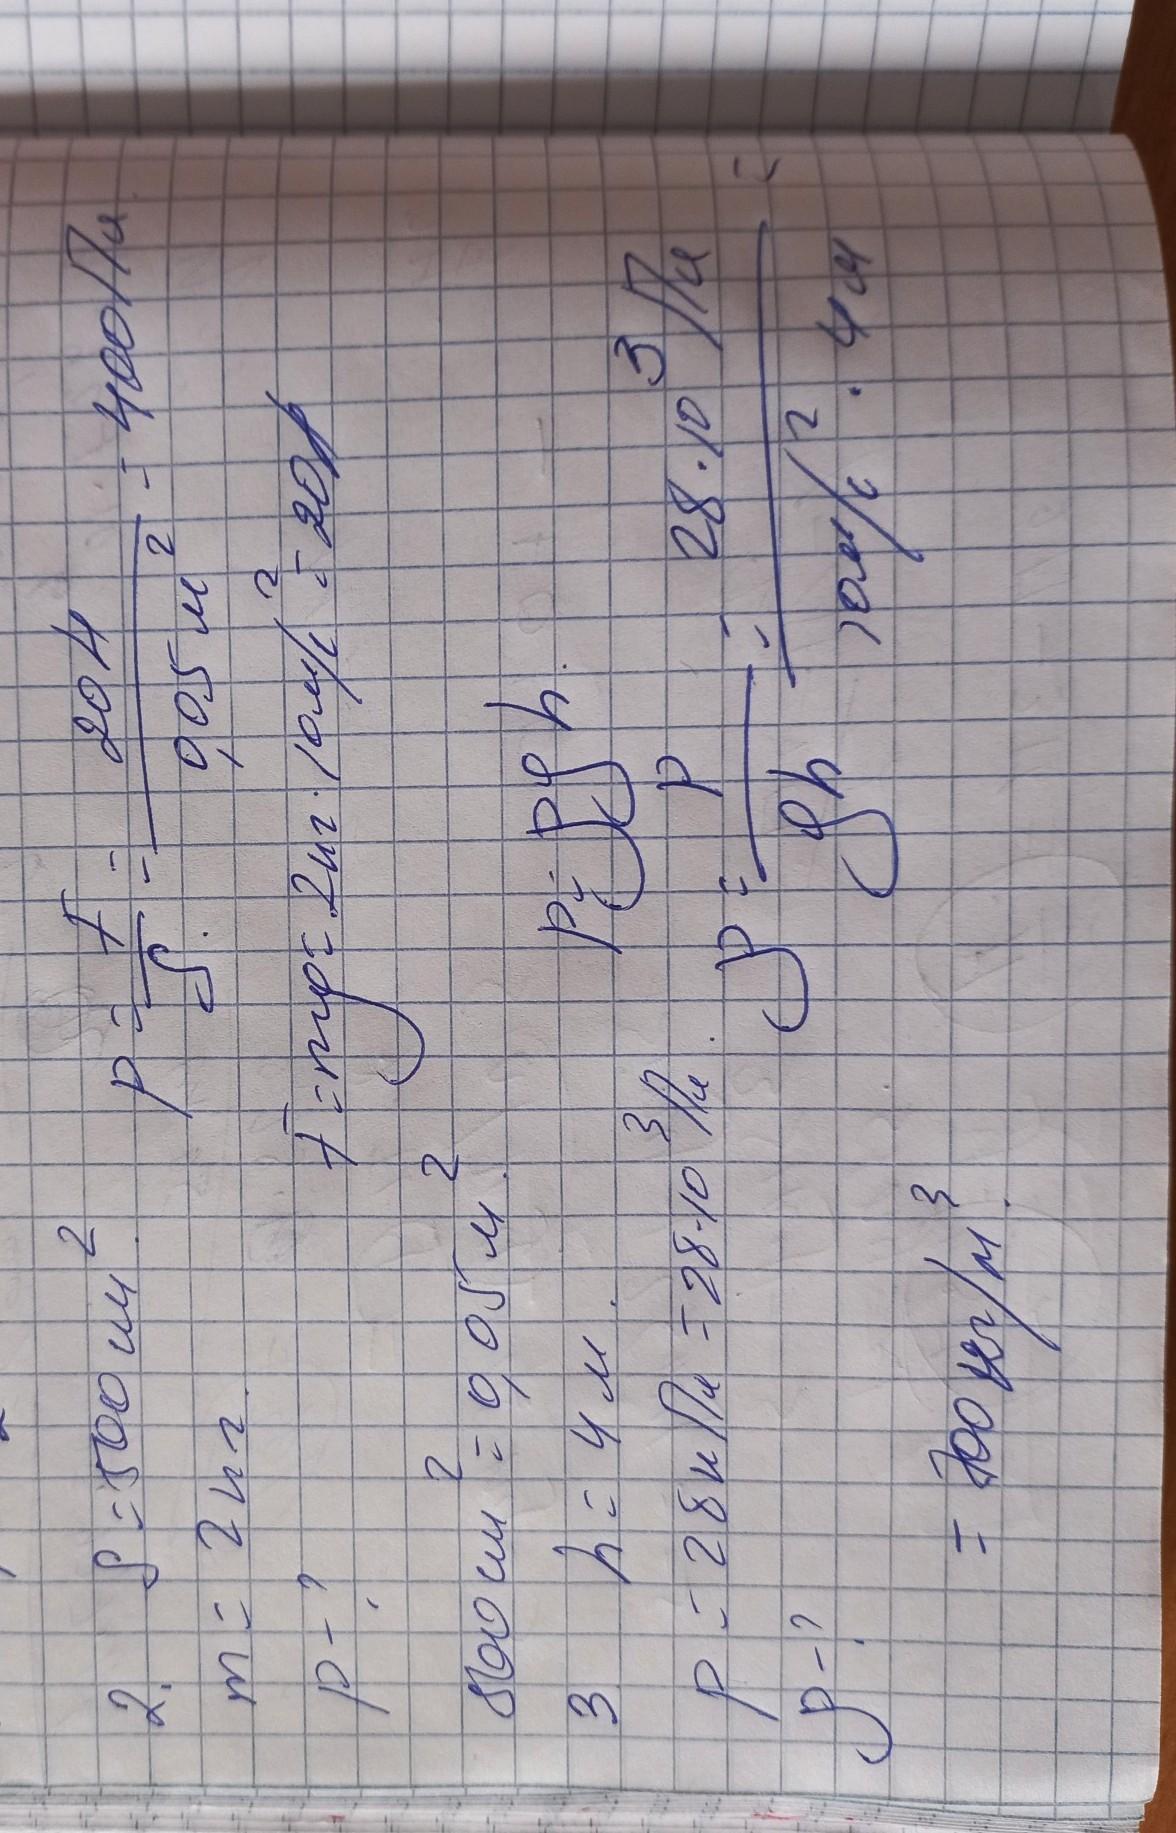 2. S = 500 см²
p = F/S = 20 Н / 0,05 м² = 400 Па
m = 2 кг.
p - ?
F = mg = 2 кг · 10 м/с² = 20 Н
500 см² = 0,05 м².
3 h = 4 м.
p = ρgh.
p = 28 кПа = 28·10³ Па.
ρ = p/gh = 28·10³ Па / 10 м/с² · 4 м =
ρ - ?
= 700 кг/м³.